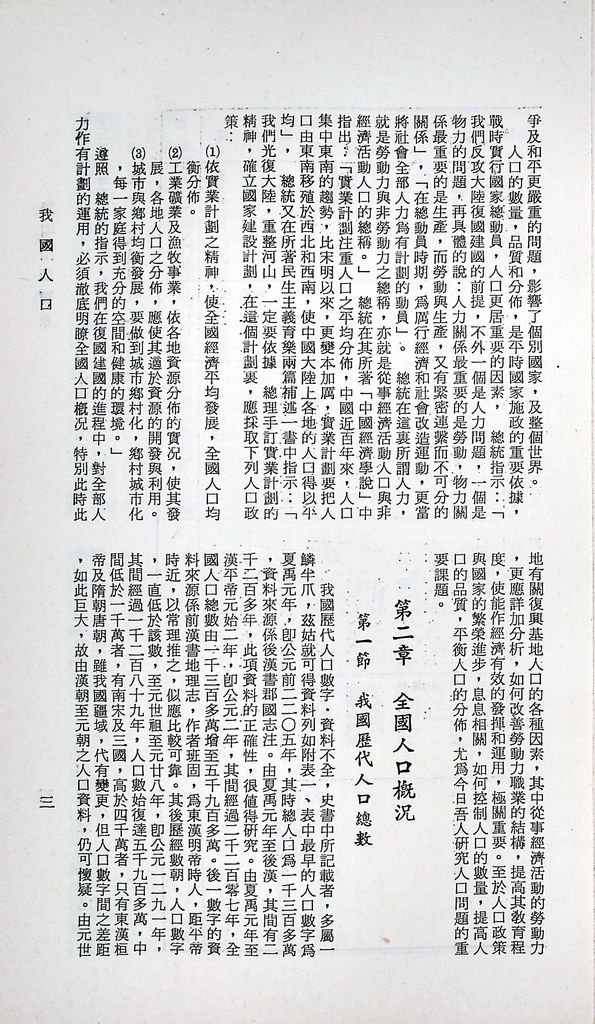 爭及和平更嚴重的問題，影響了個別國家，及整個世界。
人口的數量，品質和分佈，是平時國家施政的重要依據，
戰時實行國家總動員，人口更居重要的因素，　總統指示：「
我們反攻大陸復國建國的前提，不外一個是人力問題，一個是
物力的問題，再具體的說：人力關係最重要的是勞動，物力關
係最重要的是生產，而勞動與生產，又有緊密連繫而不可分的
關係」，「在總動員時期，爲厲行經濟和社會改造運動，更當
將社會全部人力爲有計劃的動員」。　總統在這裏所謂人力，
就是勞動力與非勞動力之總稱，亦就是從事經濟活動人口與非
經濟活動人口的總稱。」　總統在其所著「中國經濟學說」中
指出：「實業計劃注重人口之平均分佈，中國近百年來，人口
集中東南的趨勢，比宋明以來，更變本加厲，實業計劃要把人
口由東南移殖於西北和西南，使中國大陸上各地的人口得以平
均」，　總統又在所著民生主義育樂兩篇補述一書中指示：「
我們光復大陸，重整河山，一定要依據　總理手訂實業計劃的
精神，確立國家建設計劃，在這個計劃裏，應採取下列人口政
策：
(1)依實業計劃之精神，使全國經濟平均發展，全國人口均
衡分佈。
(2)工業礦業及漁牧事業，依各地資源分佈的實況，使其發
展，各地人口之分佈，應使其適於資源的開發與利用。
(3)城市與鄉村均衡發展，要做到城市鄉村化，鄉村城市化
，每一家庭得到充分的空間和健康的環境。」
遵照　總統的指示，我們在復國建國的進程中，對全部人
力作有計劃的運用，必須澈底明瞭全國人口概況，特別此時此
地有關復興基地人口的各種因素，其中從事經濟活動的勞動力
，更應詳加分析，如何改善勞動力職業的結構，提高其教育程
度，使能作經濟有效的發揮和運用，極關重要。至於人口政策
與國家的繁榮進步，息息相關，如何控制人口的數量，提高人
口的品質，平衡人口的分佈，尤爲今日吾人研究人口問題的重
要課題。
第二章　全國人口概況
第一節　我國歷代人口總數
我國歷代人口數字，資料不全，史書中所記載者，多屬一
鱗半爪，茲姑就可得資料列如附表一、表中最早的人口數字爲
夏禹元年，卽公元前二二〇五年，其時總人口爲一千三百多萬
，資料來源係後漢書郡國志注。由夏禹元年至後漢，其間有二
千二百多年，此項資料的正確性，很値得硏究。由夏禹元年至
漢平帝元始二年，卽公元二年，其間經過二千二百零七年，全
國人口總數由一千三百多萬增至五千九百多萬。後一數字的資
料來源係前漢書地理志，作者班固，爲東漢明帝時人，距平帝
時近，以常理推之，似應比較可靠。其後歷經數朝，人口數字
，一直低於該數，至元世祖至元廿八年，卽公元一二九一年，
其間經過一千二百八十九年，人口數始復達五千九百多萬，中
間低於一千萬者，有南宋及三國，高於四千萬者，只有東漢桓
帝及隋朝唐朝，雖我國疆域，代有變更，但人口數字間之差距
，如此巨大，故由漢朝至元朝之人口資料，仍可懷疑。由元世
我國人口
三